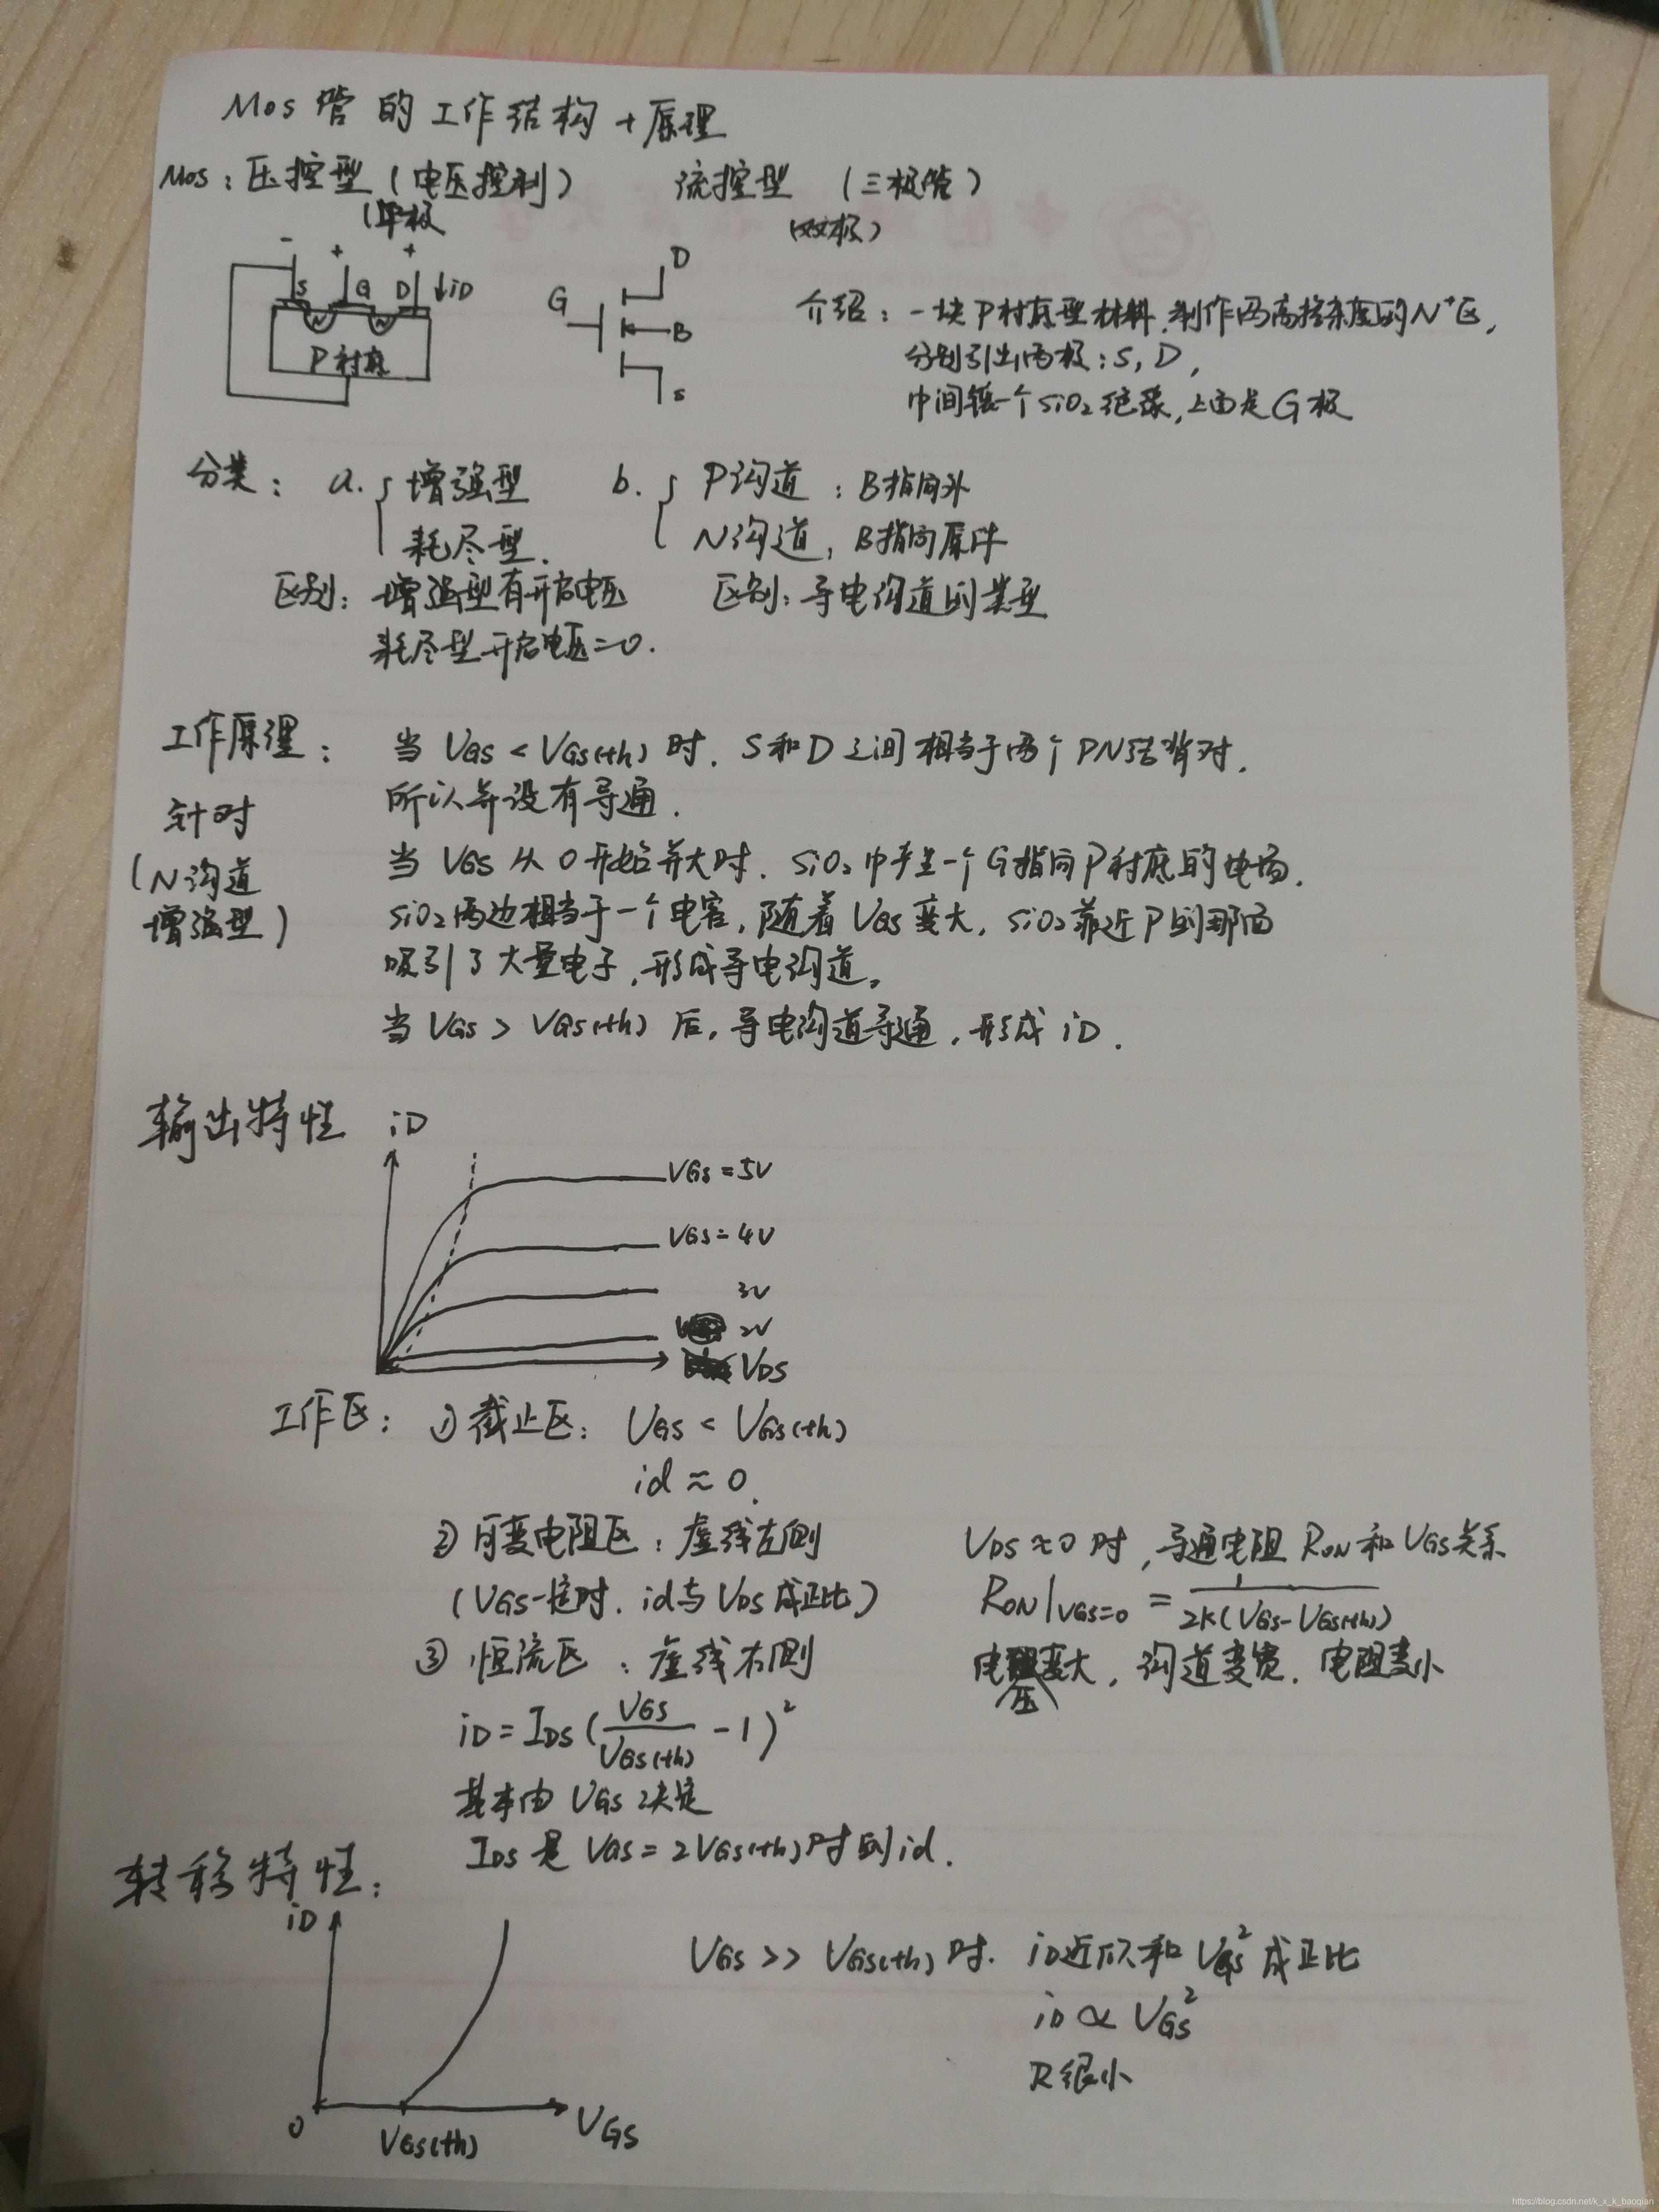 Mos 管的工作结构 + 原理
Mos：压控型（电压控制） 流控型 （三极管）
（单极 （双极）
- + +
S G D ↓iD
N N
P衬底
G D B S
介绍：一块P衬底型材料，制作两高掺杂度的N⁺区，
分别引出两极：S，D，
中间镀一个SiO₂绝缘，上面是G极
分类： a. { 增强型 b. { P沟道：B指向外
耗尽型. N沟道，B指向原件
区别：增强型有开启电压 区别：导电沟道的类型
耗尽型开启电压=0.
工作原理： 当 VGS < VGS(th) 时. S和D之间相当于两个PN结背对,
所以并没有导通.
针对
（N沟道
增强型）
当 VGS 从 0 开始并大时. SiO₂中产生一个G指向P衬底的电场.
SiO₂两边相当于一个电容, 随着 VGS 变大, SiO₂靠近P的那面
吸引了大量电子, 形成导电沟道。
当 VGS > VGS(th) 后, 导电沟道导通, 形成 iD.
输出特性 iD
VGS = 5V
VGS = 4V
3V
2V
VDS
工作区：① 截止区： VGS < VGS(th)
id ≈ 0.
② 可变电阻区：虚线左侧
（VGS一定时. id与VDS成正比）
VDS ≈ 0 时, 导通电阻 RON 和 VGS关系
RON|VGS=0 = 1/2K(VGS-VGS(th))
电压变大, 沟道变宽. 电阻变小
③ 恒流区：虚线右侧
iD = IDS (VGS/VGS(th) - 1)²
基本由 VGS 决定
IDS 是 VGS = 2VGS(th) 时的id.
转移特性：
iD
0 VGS(th) VGS
VGS >> VGS(th) 时. iD近似和 VGS² 成正比
iD ∝ VGS²
R很小
https://blog.csdn.net/k_x_k_baoqian